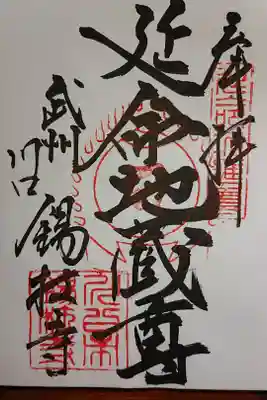 奉拝
延命地蔵尊
武州
川口
錫杖寺